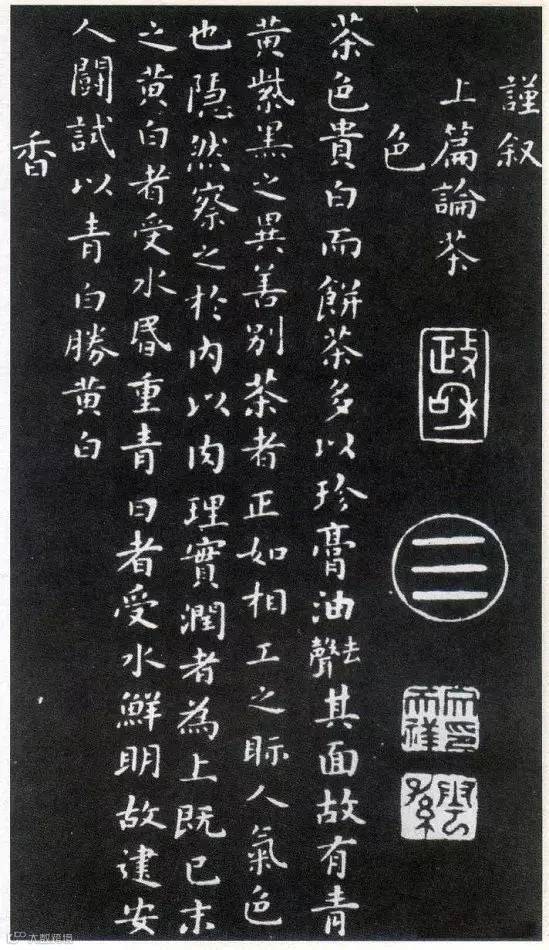 謹叙
上篇論茶
色
茶色貴白而餅茶多以珍膏油去聲其面故有青
黄紫黑之異善别茶者正如相工之眎人氣色
也隠然察之於内以肉理實潤者為上既已末
之黄白者受水昬重青白者受水鮮明故建安
人鬭試以青白勝黄白
香
政和
三
大数跨境